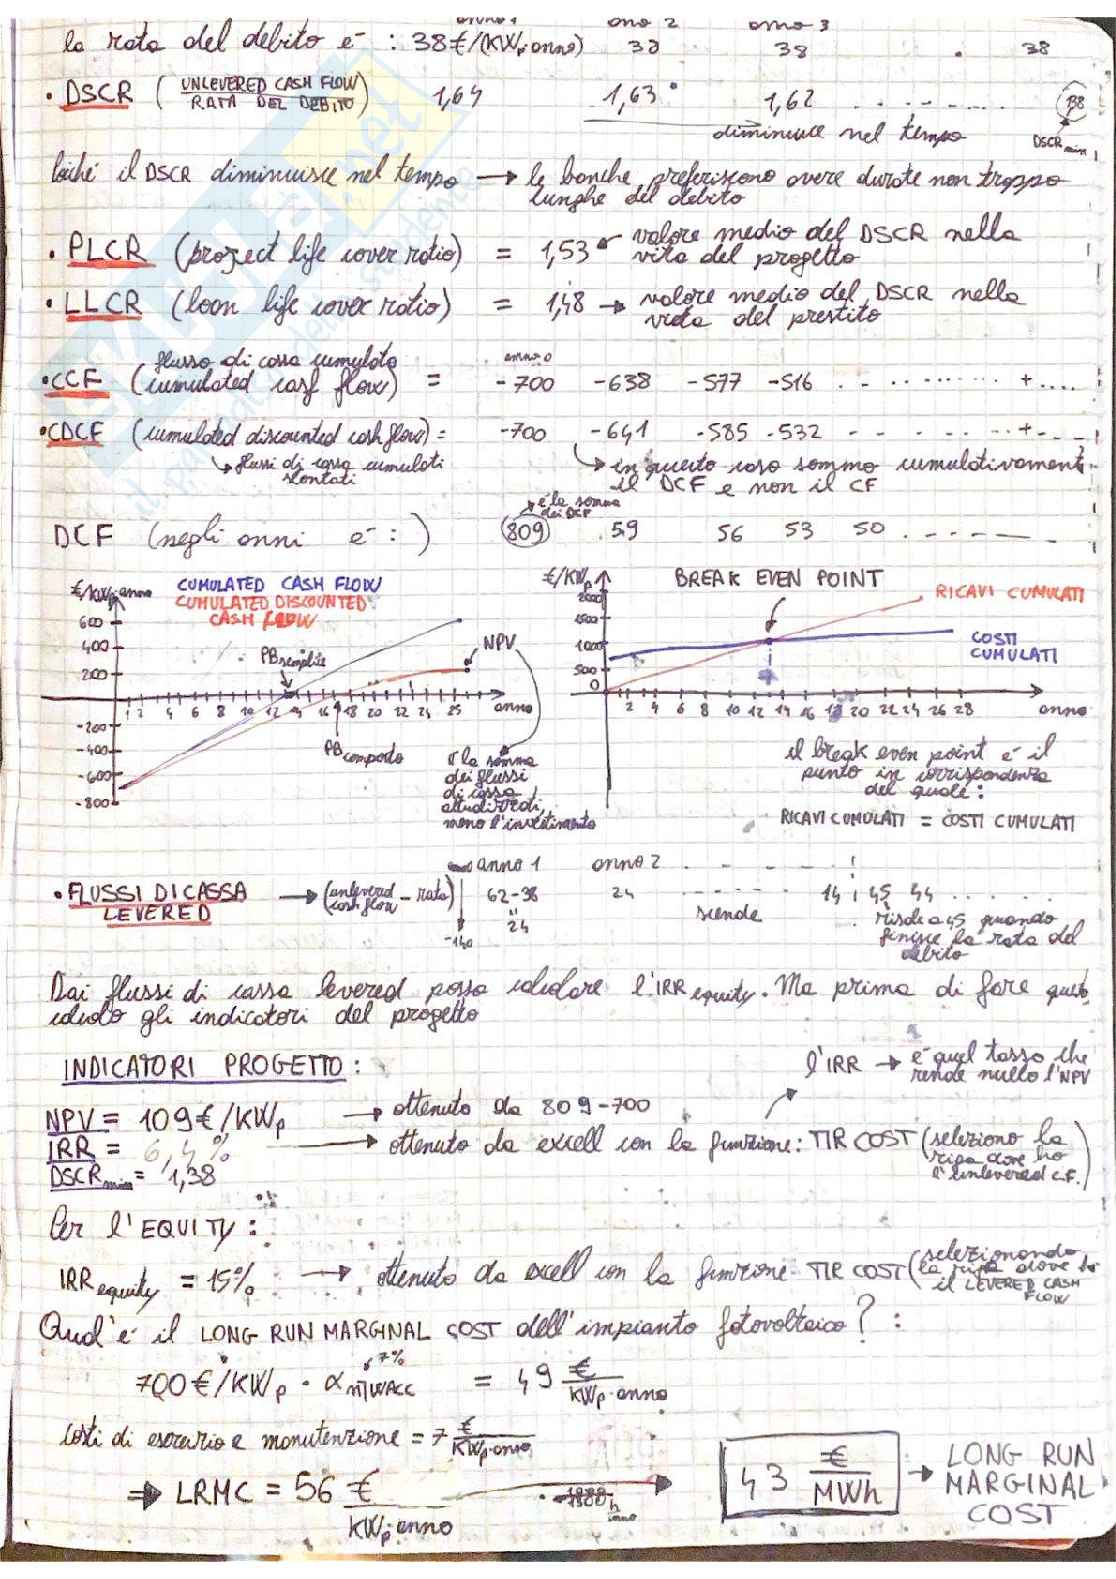 anno 1 anno 2 anno 3
la rata del debito è : 38 €/(KWp·anno) 38 38 . 38
• DSCR ( UNLEVERED CASH FLOW / RATA DEL DEBITO ) 1,64 1,63 1,62 . . . . . .
diminuisce nel tempo DSCR min
Poiché il DSCR diminuisce nel tempo → le banche preferiscono avere durate non troppo
lunghe del debito
• PLCR (project life cover ratio) = 1,53 ← valore medio del DSCR nella
vita del progetto
• LLCR (loan life cover ratio) = 1,48 → valore medio del DSCR nella
vita del prestito
flusso di cassa cumulato anno 0
• CCF (cumulated cash flow) = -700 -638 -577 -516 . . . . . . . . + ....
• CDCF (cumulated discounted cash flow) = -700 -641 -585 -532 - - - - - - + - - -
↳ flussi di cassa cumulati
scontati
↳ in questo caso sommo cumulativamente
il DCF e non il CF
è la somma
dei DCF
DCF (negli anni è : ) 809 59 56 53 50 . . - . - - - -
€/KWp anno
CUMULATED CASH FLOW
CUMULATED DISCOUNTED
CASH FLOW
600
400
200
-200
-400
-600
-800
PB semplice
NPV
1 2 4 6 8 10 12 14 16 18 20 22 24 25 anno
PB composto
è la somma
dei flussi
di cassa
attualizzati,
meno l'investimento
€/KWp
BREAK EVEN POINT
RICAVI CUMULATI
COSTI
CUMULATI
2000
1500
1000
500
0
2 4 6 8 10 12 14 16 18 20 22 24 26 28 anno
il break even point è il
punto in corrispondenza
del quale :
RICAVI CUMULATI = COSTI CUMULATI
anno 1 anno 2 . - - - - - -
• FLUSSI DI CASSA LEVERED → (unlevered cash flow - rata) 62-38 24 - - - - - 14 45 44 . . . . .
" 24
scende
-140
risale a 45 quando
finisce la rata del
debito
Dai flussi di cassa levered posso calcolare l'IRR equity. Ma prima di fare questo
calcolo gli indicatori del progetto
INDICATORI PROGETTO :
l'IRR → è quel tasso che
rende nullo l'NPV
NPV = 109 €/KWp → ottenuto da 809-700
IRR = 6,4 % → ottenuto da excell con la funzione : TIR COST (seleziono la
riga dove ho
l'unlevered C.F.)
DSCR min = 1,38
Per l'EQUITY :
IRR equity = 15% → ottenuto da excell con la funzione TIR COST (selezionando
la riga dove ho
il LEVERED CASH
FLOW
Qual'è il LONG RUN MARGINAL COST dell'impianto fotovoltaico? :
7%
700 €/KWp · α n|WACC = 49 €/KWp·anno
costi di esercizio e manutenzione = 7 €/KWp·anno
⇒ LRMC = 56 €/KWp·anno → 43 €/MWh → LONG RUN
MARGINAL
COST